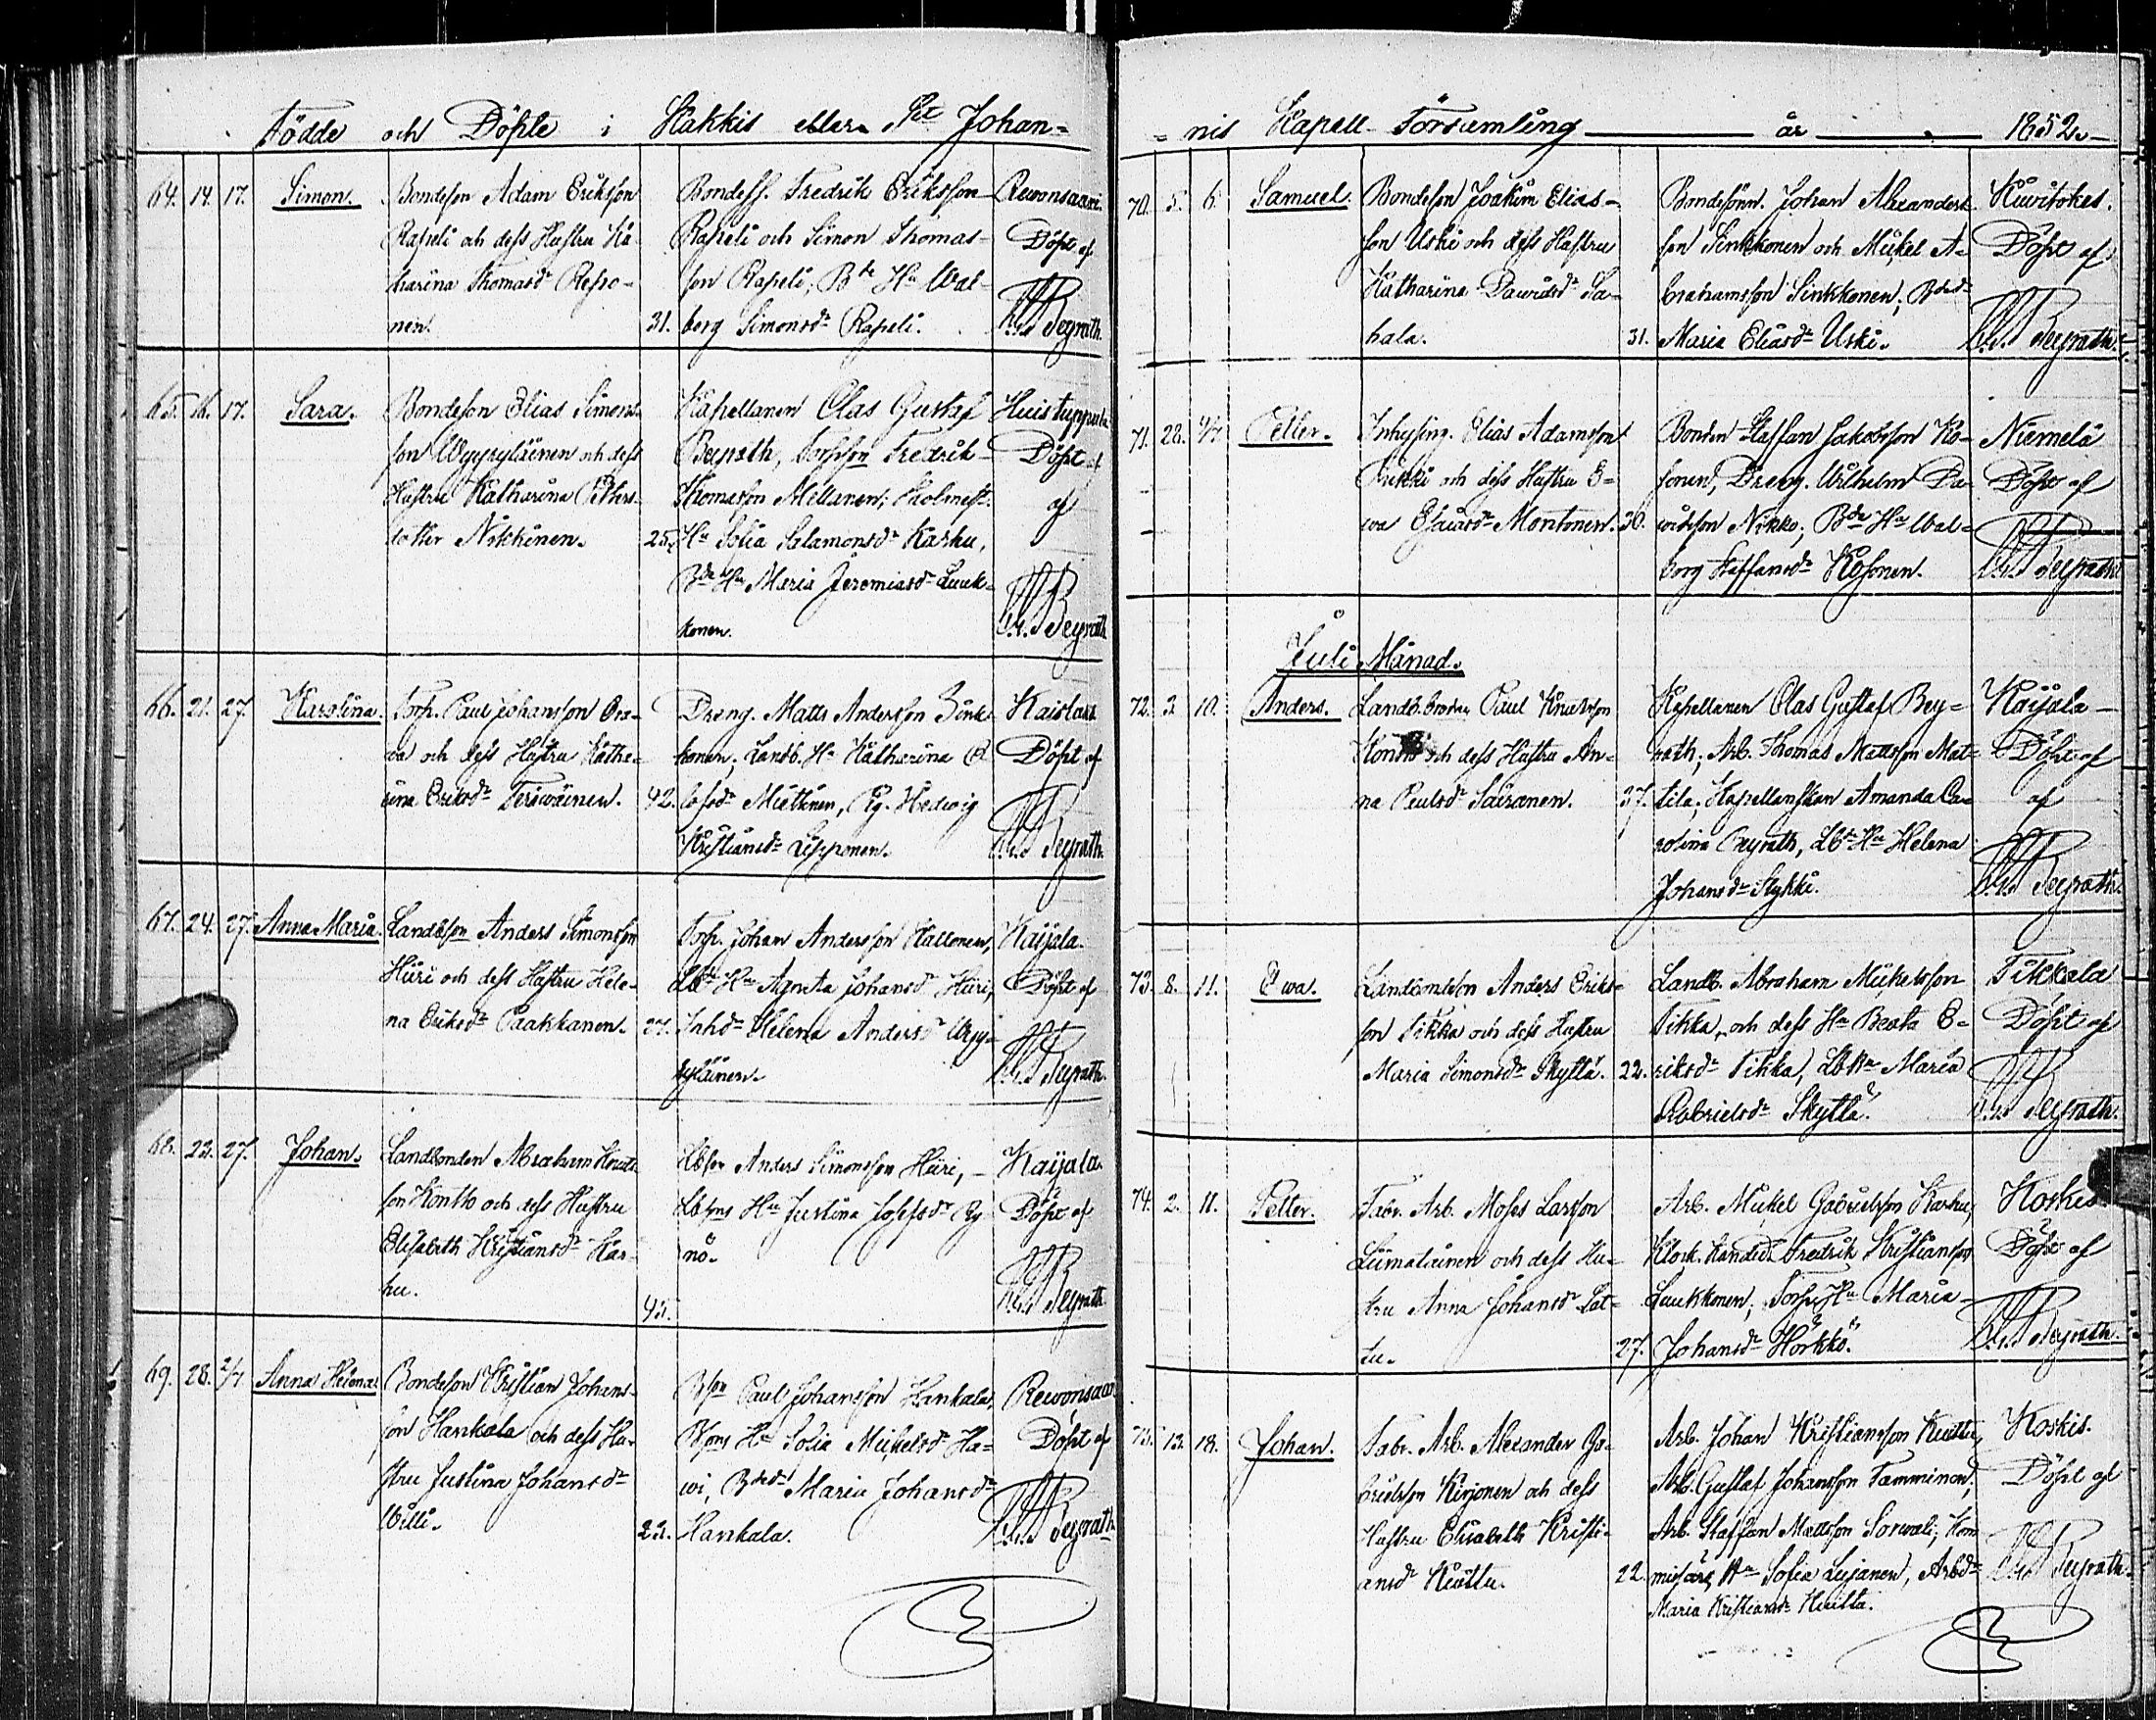 Födde och Döpte i Kakkis eller St Johan=
64. 14. 17. Simon. Bondeson Adam Eriksson
Rapeli och dess Hustru Ka-
tharina Thomasdr Repo-
nen. 31.
Bondess. Fredrik Eriksson
Rapeli och Simon Thomas-
son Rapeli, Bde Hu Wal-
borg Simonsdr Rapeli.
Rewonsaari.
Döpt af
Beyrath.
65. 16. 17. Sara. Bondeson Elias Simons-
son Wyyryläinen och dess
Hustru Katharina Petters-
dotter Nikkinen. 25.
Kapellanen Olas Gustaf
Beyrath, Torpson Fredrik
Thomasson Millanen;
Hu Sofia Salamonsdr Karhu,
Bde Hu Maria Jeremiasdr Luuk-
konen.
Huistuppula
Döpt af
af
Beyrath
66. 21. 27. Karolina. Torp. Paul Johansson Ora-
wa och dess Hustru Katha-
rina Eriksdr Terwäinen. 42.
Dreng. Matts Andersson Sink-
konen; Landb. Hu Katharina
Miettinen, Pig. Hedwig
Kristiansdr Lipponen.
Kaislaks
Döpt af
Beyrath.
67. 24. 27. Anna Maria. Landbson Anders Simonsson
Hiiri och dess Hustru Hele-
na Eriksdr Paakkanen. 27.
Torp. Johan Andersson Hallonen,
Lbde Hu Agneta Johansd Hiiri,
Inhdr Helena Andersdr Wyy-
ryläinen.
Kaijala.
Döpt af
Beyrath.
68. 23. 27. Johan. Landbonden Abraham Knuts-
son Kontto och dess Hustru
Elisabeth Kristiansdr Kar-
hu. 45.
Lbson Anders Simonsson Hiiri, —
Lbsons Hu Justina Josefsdr Ry-
nö.
Kaijala.
Döpt af
Beyrath
69. 28. 2/7 Anna Helena. Bondeson Kristian Johans-
son Hankala och dess Hu-
stru Justina Johansdr
Willi. 23.
Bson Paul Johansson Hankala,
Bsons Hu Sofia Mickelsd Ha-
wi, Bdedr Maria Johansdr
Hankala.
Rewonsaari
Döpt af
Beyrath
= nis Kapell-Församling år 1852.
70. 5. 6. Samuel. Bondeson Joakim Elias-
son Uski och dess Hustru
Katharina Dawidsdr Sa-
hala. 31.
Bondesönn. Johan Alexanders-
son Sinkkonen och Mickel A-
brahamsson Sinkkonen; Bdedr
Maria Eliasdr Uski.
Kuwitokes.
Döpt af
Beyrath.
71. 28. 4/7 Petter. Inhysing. Elias Adamsson
Kukki och dess Hustru E-
wa Esaiasdr Montonen. 30.
Bonden Staffan Jakobsson Ko-
sonen, Dreng. Wilhelm Da-
widsson Nikko; Bde Hu Wal-
borg Staffansdr Kosonen.
Niemelä
Döpt af
Beyrath
Juli Månad.
72. 3. 10. Anders. Landb. broder Paul Knutsson
Kontto och dess Hustru An-
na Paulsdr Sairanen. 37.
Kapellanen Olas Gustaf Bey-
rath; Arb. Thomas Mattsson Mat-
tila; Kapellanskan Amanda Ca-
rolina Beyrath, Lbde Hu Helena
Johansdr Slykki.
Kaijala —
Döpt af
af
Beyrath.
73. 8. 11. Ewa. Landbondeson Anders Eriks-
son Tikka och dess Hustru
Maria Simonsdr Skyttä. 22.
Landb. Abraham Mickelsson
Tikka, och dess Hu Beata E-
riksdr Tikka, Lb Hu Maria
Gabrielsdr Skyttä.
Tikkala
Döpt af
Beyrath.
74. 2. 11. Petter. Fabr. Arb. Moses Larsson
Liimatainen och dess Hu-
stru Anna Johansdr Lat-
tu. 27.
Arb. Mickel Gabrielsson Karhu,
Klock. Kandid. Fredrik Kristiansson
Luukkonen; Torps Hu Maria
Johansdr Hörkkö.
Koskis
Döpt af
Beyrath.
75. 13. 18. Johan. Fabr. Arb. Alexander Ga-
brielsson Kirjonen och dess
Hustru Elisabeth Kristi-
ansdr Kuittu. 22.
Arb. Johan Kristiansson Kuittu,
Arb. Gustaf Johansson Tamminen,
Arb. Staffan Mattsson Sorwali; Kom
missars Hu Sofia Lijanen, Arbdr
Maria Kristiansdr Kuittu.
Koskis.
Döpt af
Beyrath.